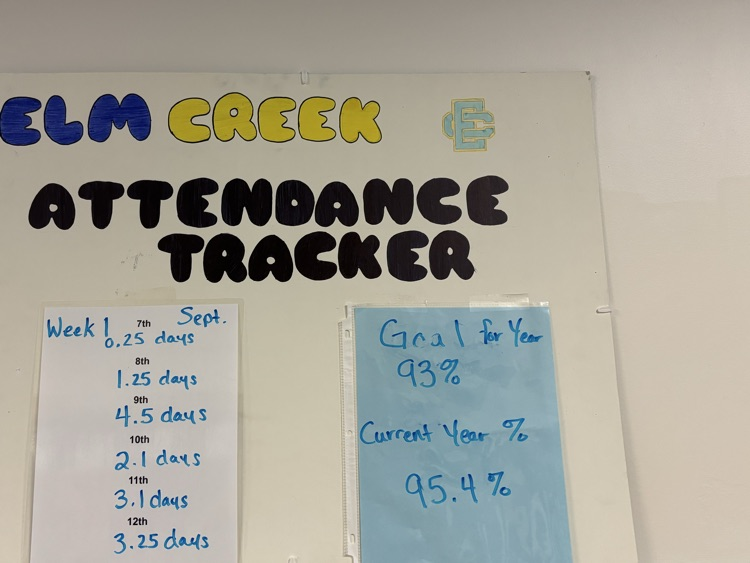 ELM CREEK
EC
ATTENDANCE
TRACKER
Week 1 Sept.
7th
0.25 days
8th
1.25 days
9th
4.5 days
10th
2.1 days
11th
3.1 days
12th
3.25 days
Goal for Year
93%
Current Year %
95.4%